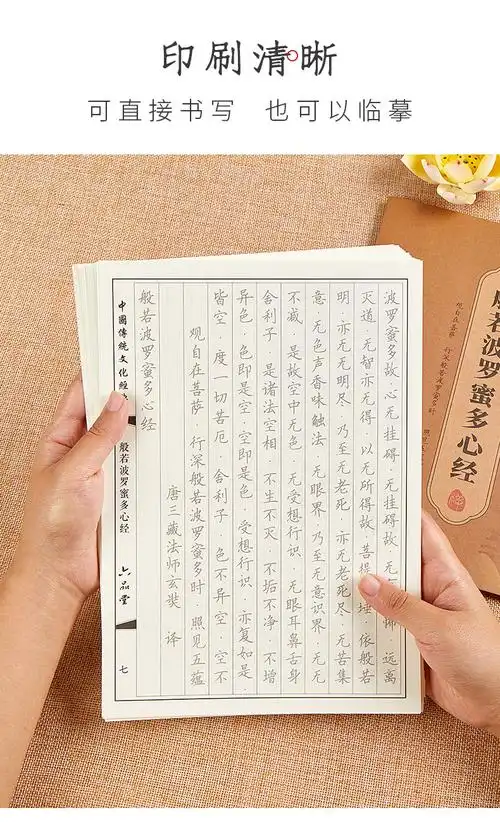 印刷清晰
可直接书写 也可以临摹
中國傳統文化經
般若波罗蜜多心经
六品堂
七
般若波罗蜜多心经
唐三藏法师玄奘 译
观自在菩萨·行深般若波罗蜜多时·照见五蕴
皆空·度一切苦厄·舍利子·色不异空·空不
异色·色即是空·空即是色·受想行识·亦复如是·
舍利子·是诸法空相·不生不灭·不垢不净·不增
不减·是故空中无色·无受想行识·无眼耳鼻舌身
意·无色声香味触法·无眼界·乃至无意识界·无无
明·亦无无明尽·乃至无老死·亦无老死尽·无苦集
灭道·无智亦无得·以无所得故·菩提 埵·依般若
波罗蜜多故·心无挂碍·无挂碍故·无 怖·远离
若波罗蜜多心经
观自在菩萨
行深般若波罗蜜多时